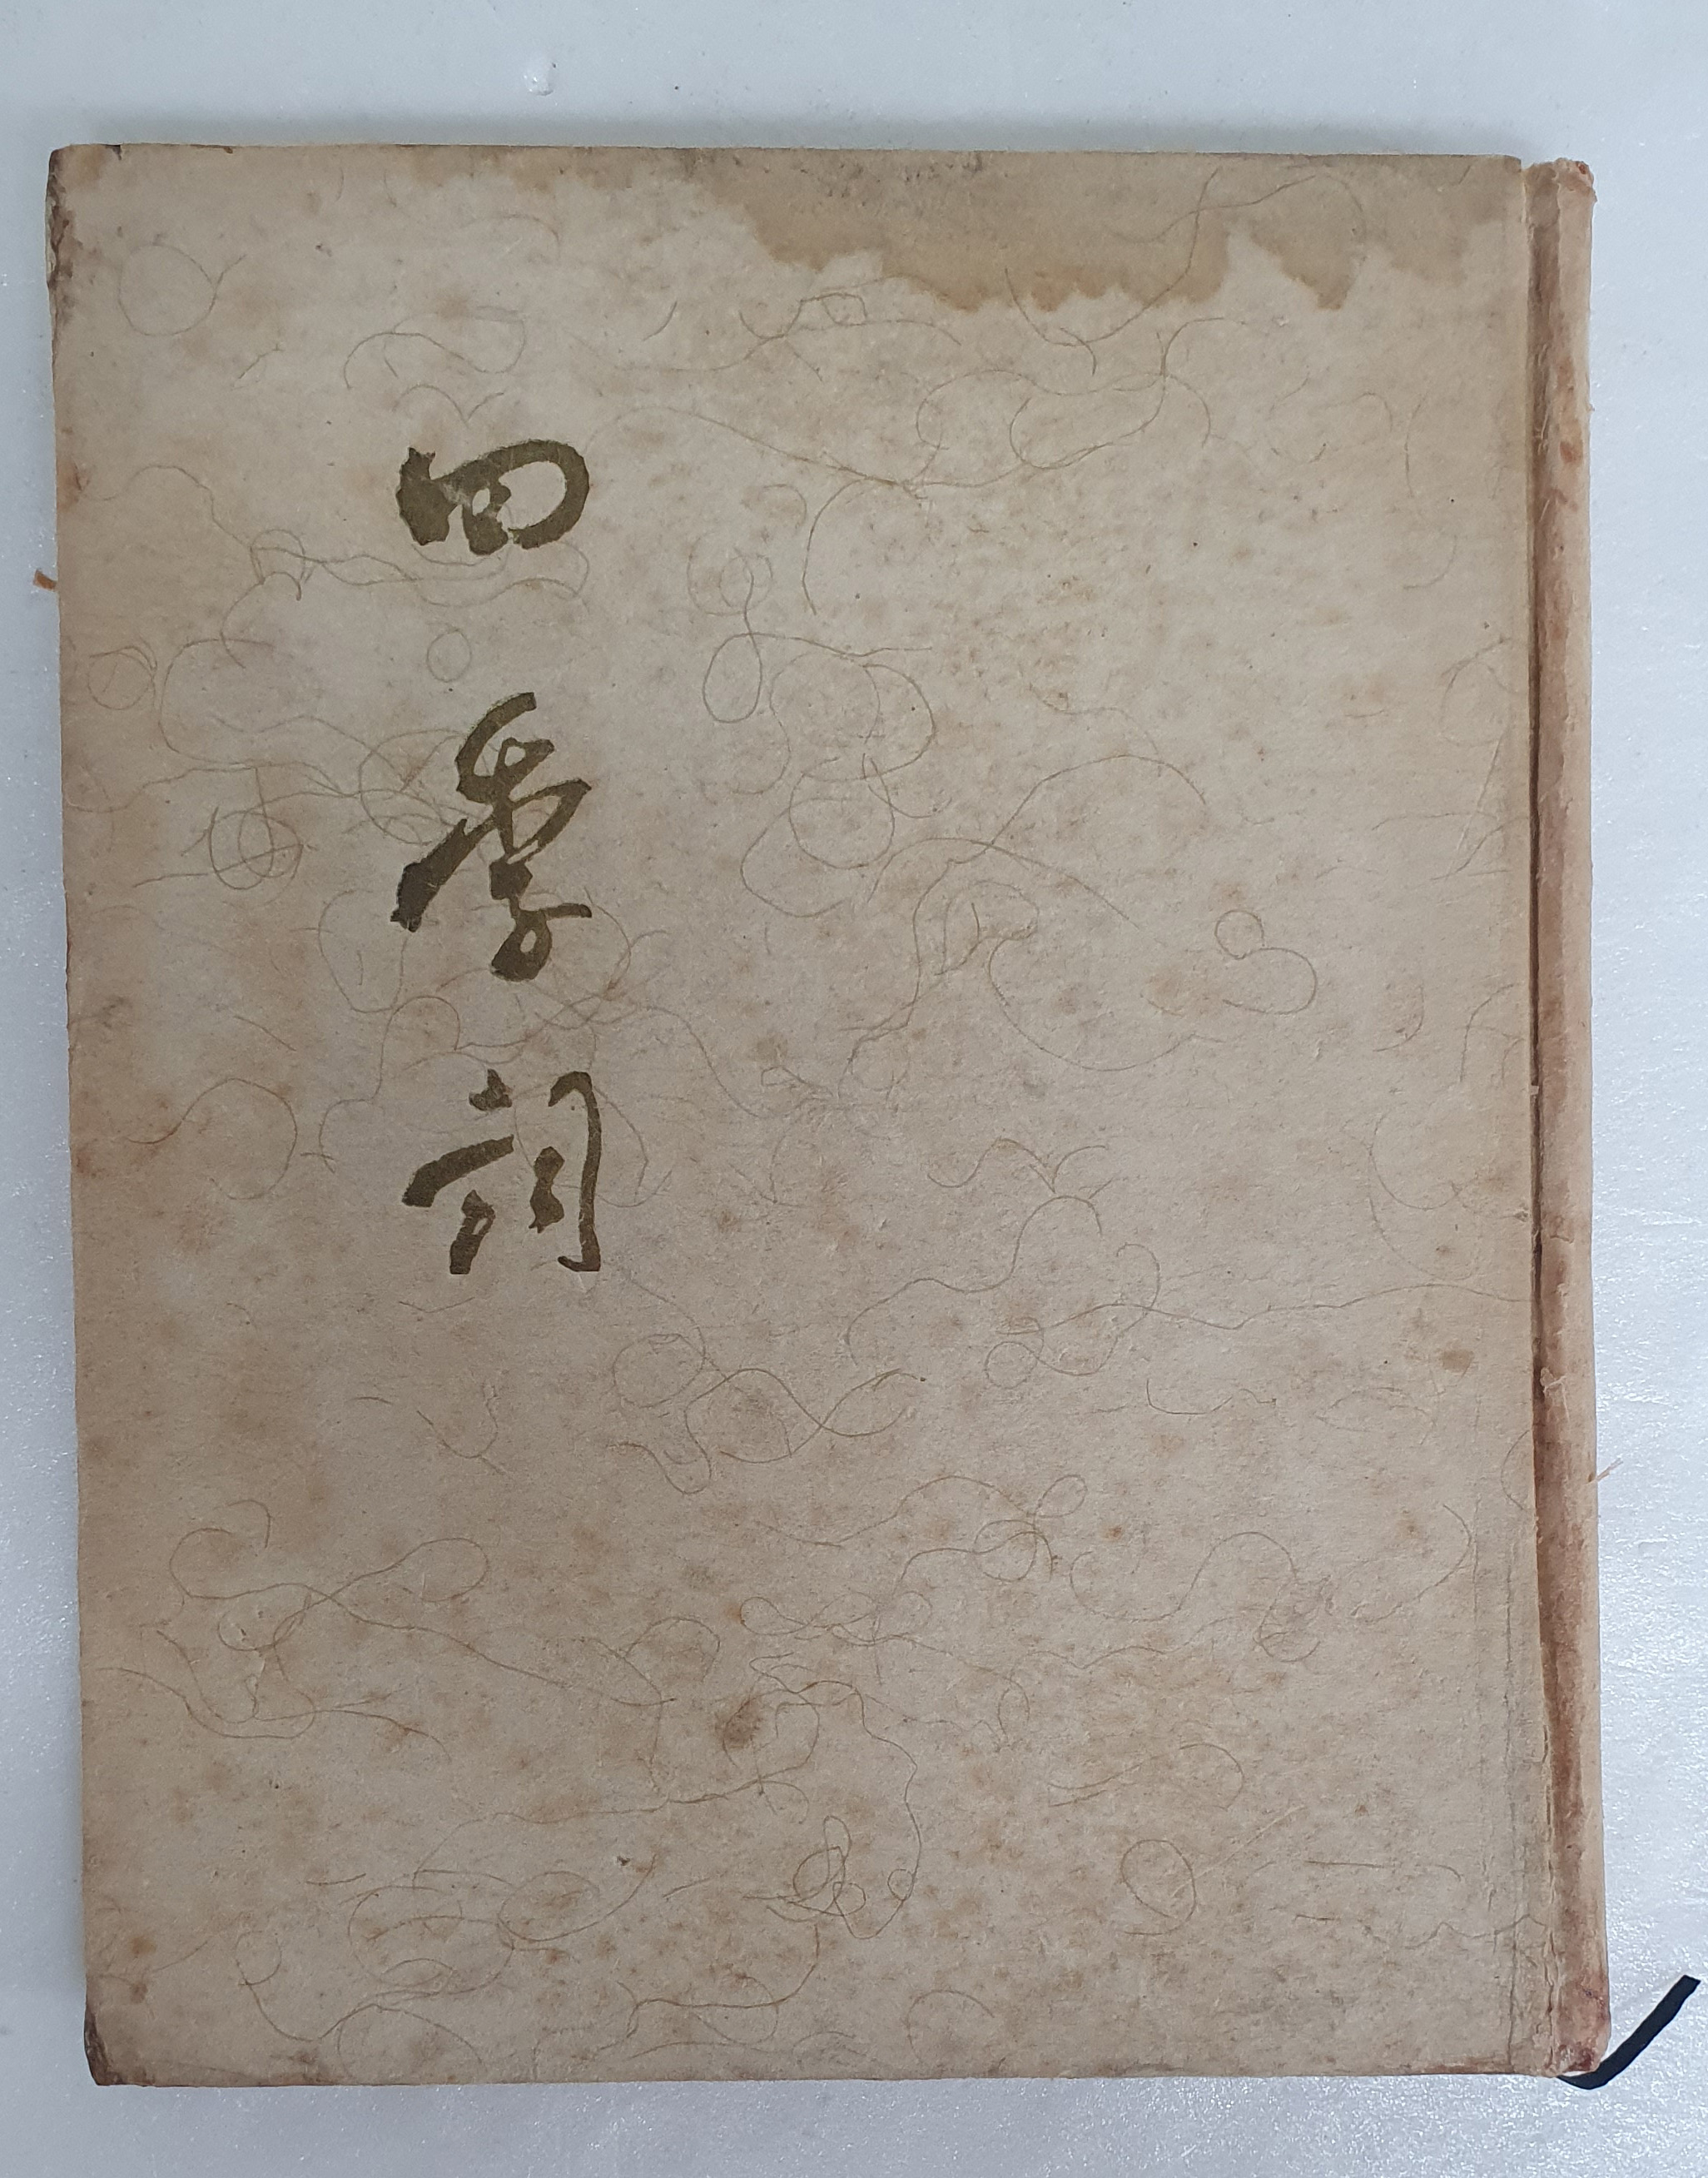 四季詞